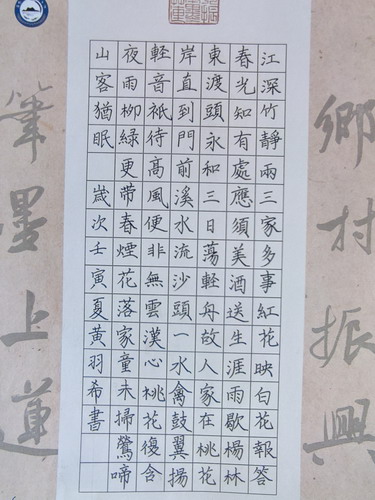 鄉村振興
江深竹靜兩三家多事紅花映白花報答
春光知有處應須美酒送生涯雨歇楊林
東渡頭永和三日蕩輕舟故人家在桃花
岸直到門前溪水流沙頭一水禽鼓翼揚
輕音祇待高風便非無雲漢心桃花複含
夜雨柳綠更帶春煙花落家童未掃鶯啼
山客猶眠 歲次壬寅夏黃羽希書
筆墨上蓮